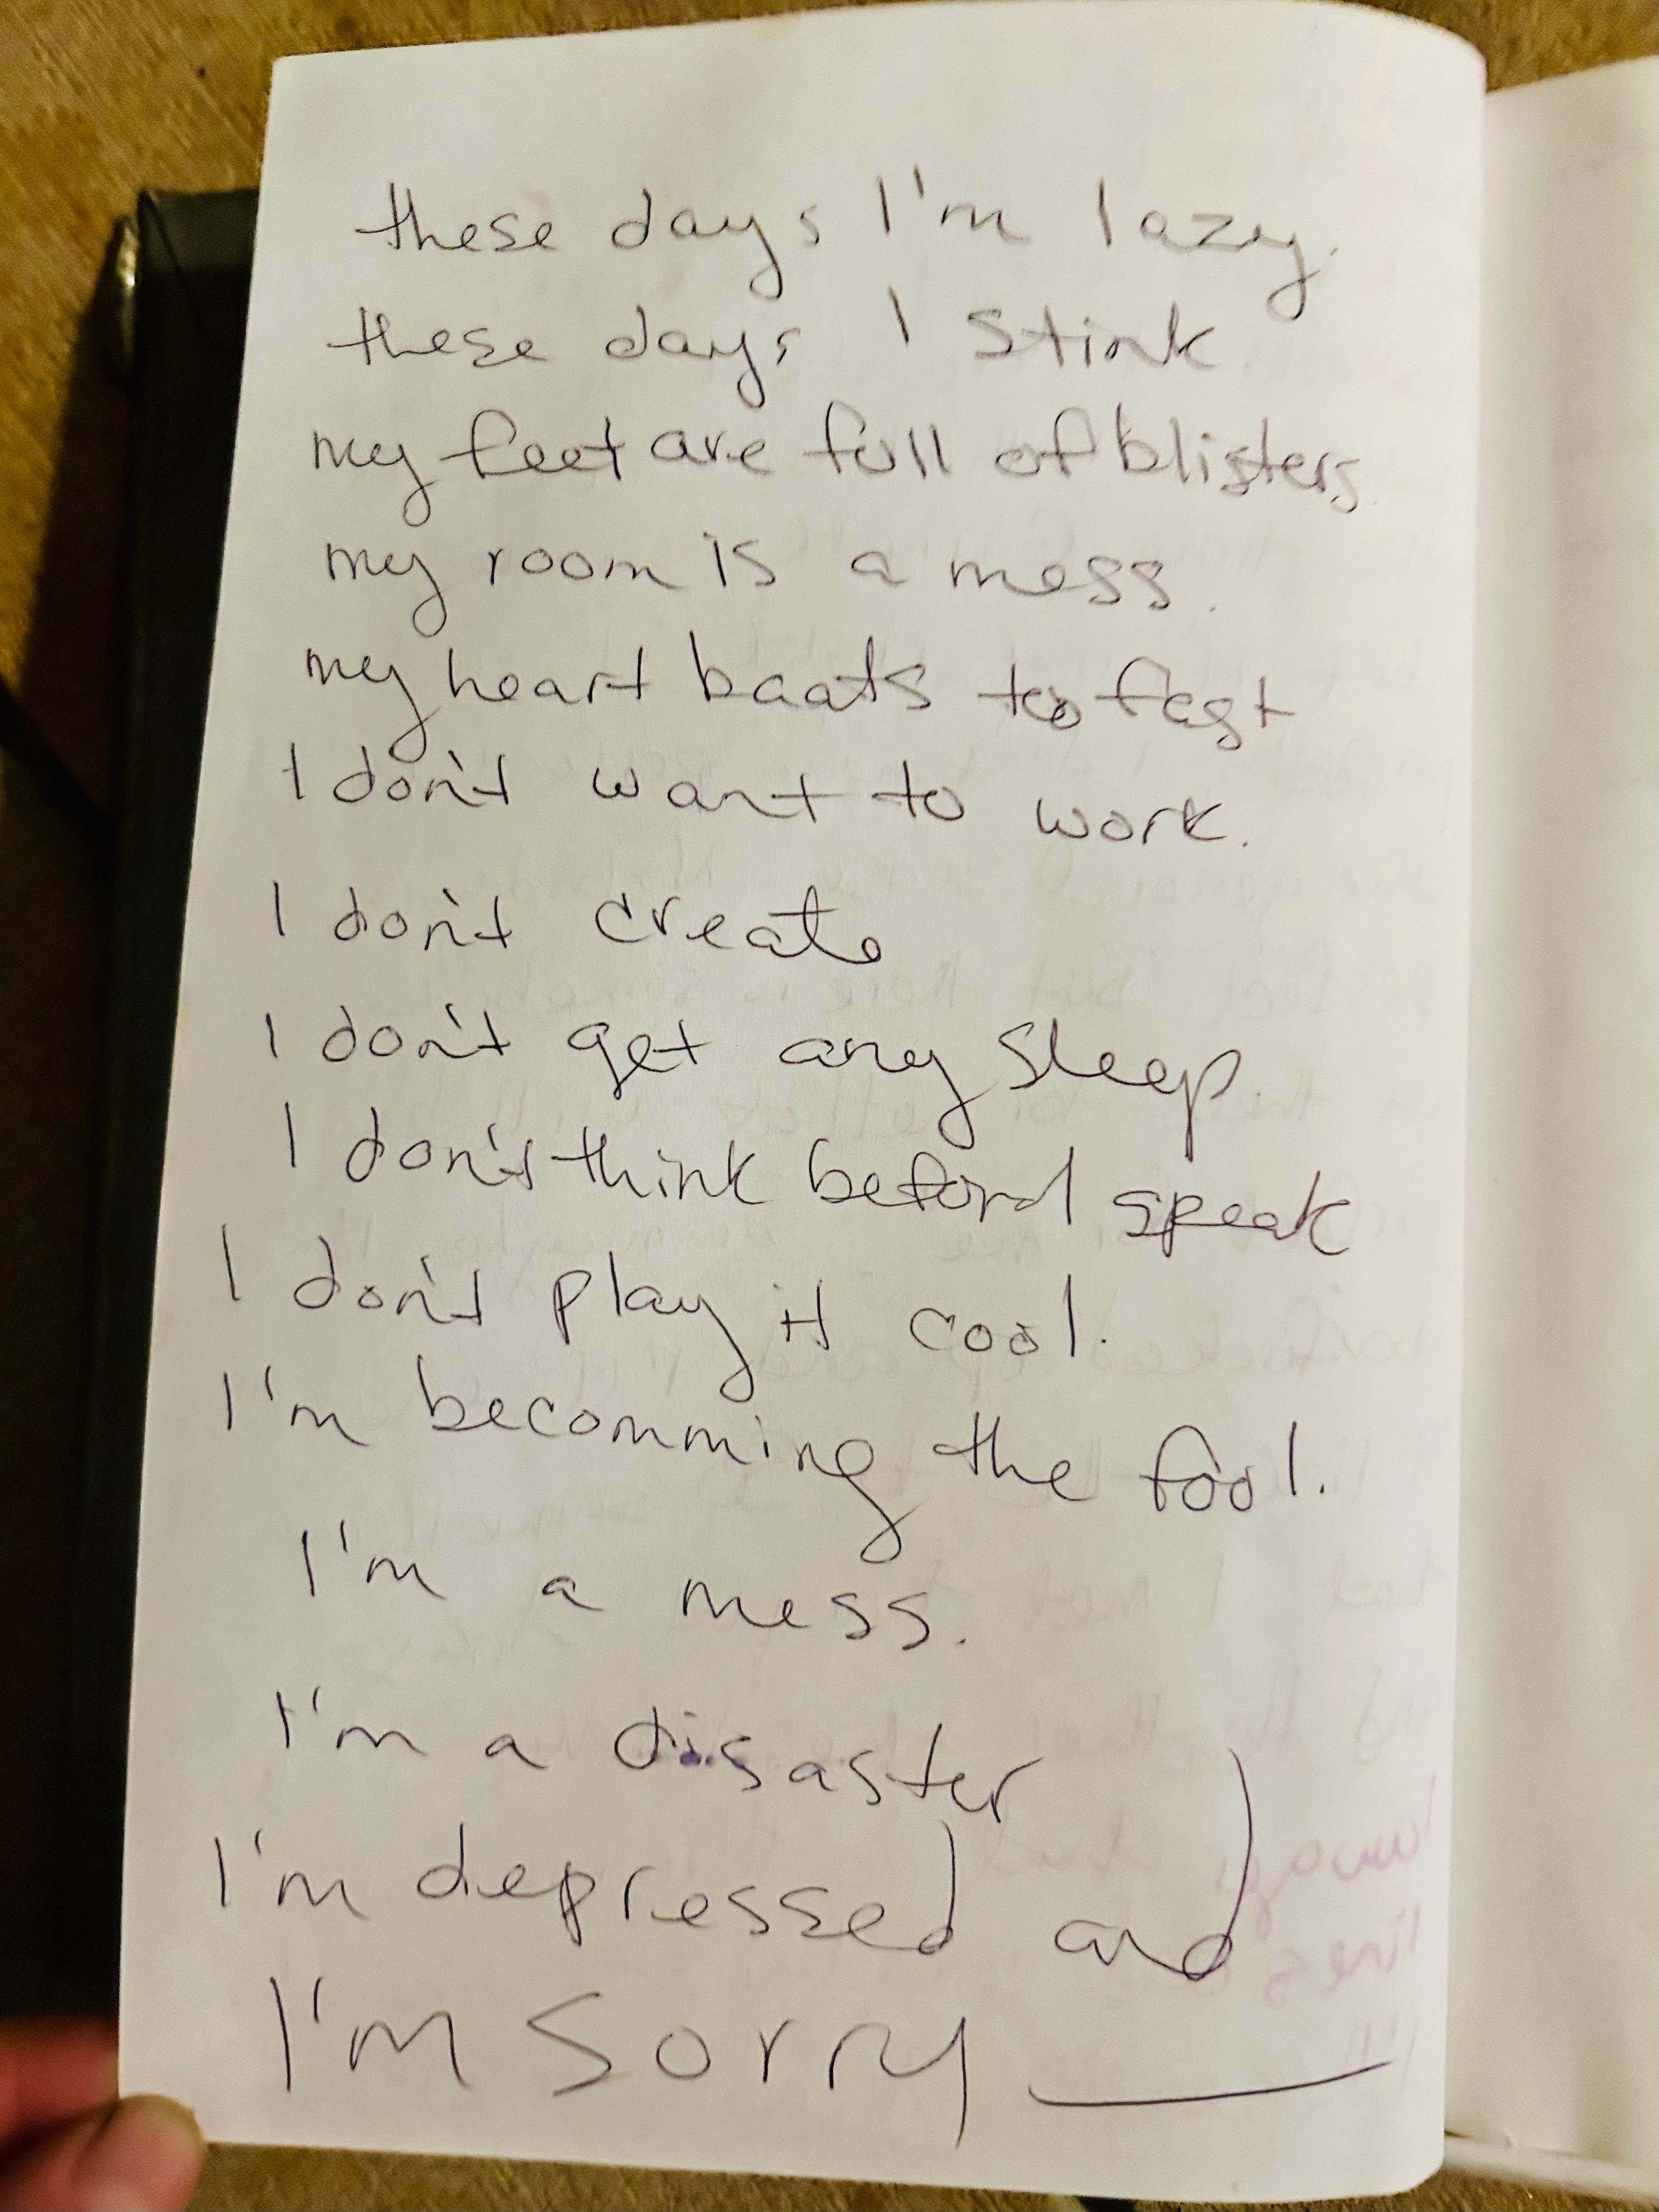 these days I'm lazy.
these days I stink.
my feet are full of blisters
my room is a mess.
my heart baats too fast
I don't want to work.
I don't create
I don't get any sleep.
I don't think before I speak
I don't play it cool.
I'm becomming the fool.
I'm a mess.
I'm a disaster
I'm depressed and
I'm sorry